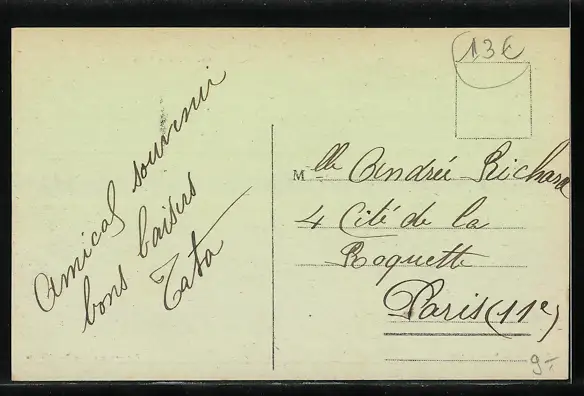 13€
Amical souvenir
bons baisers
Tata
Mlle Andrée Richard
4 Cité de la
Roquette
Paris (11e)
9-